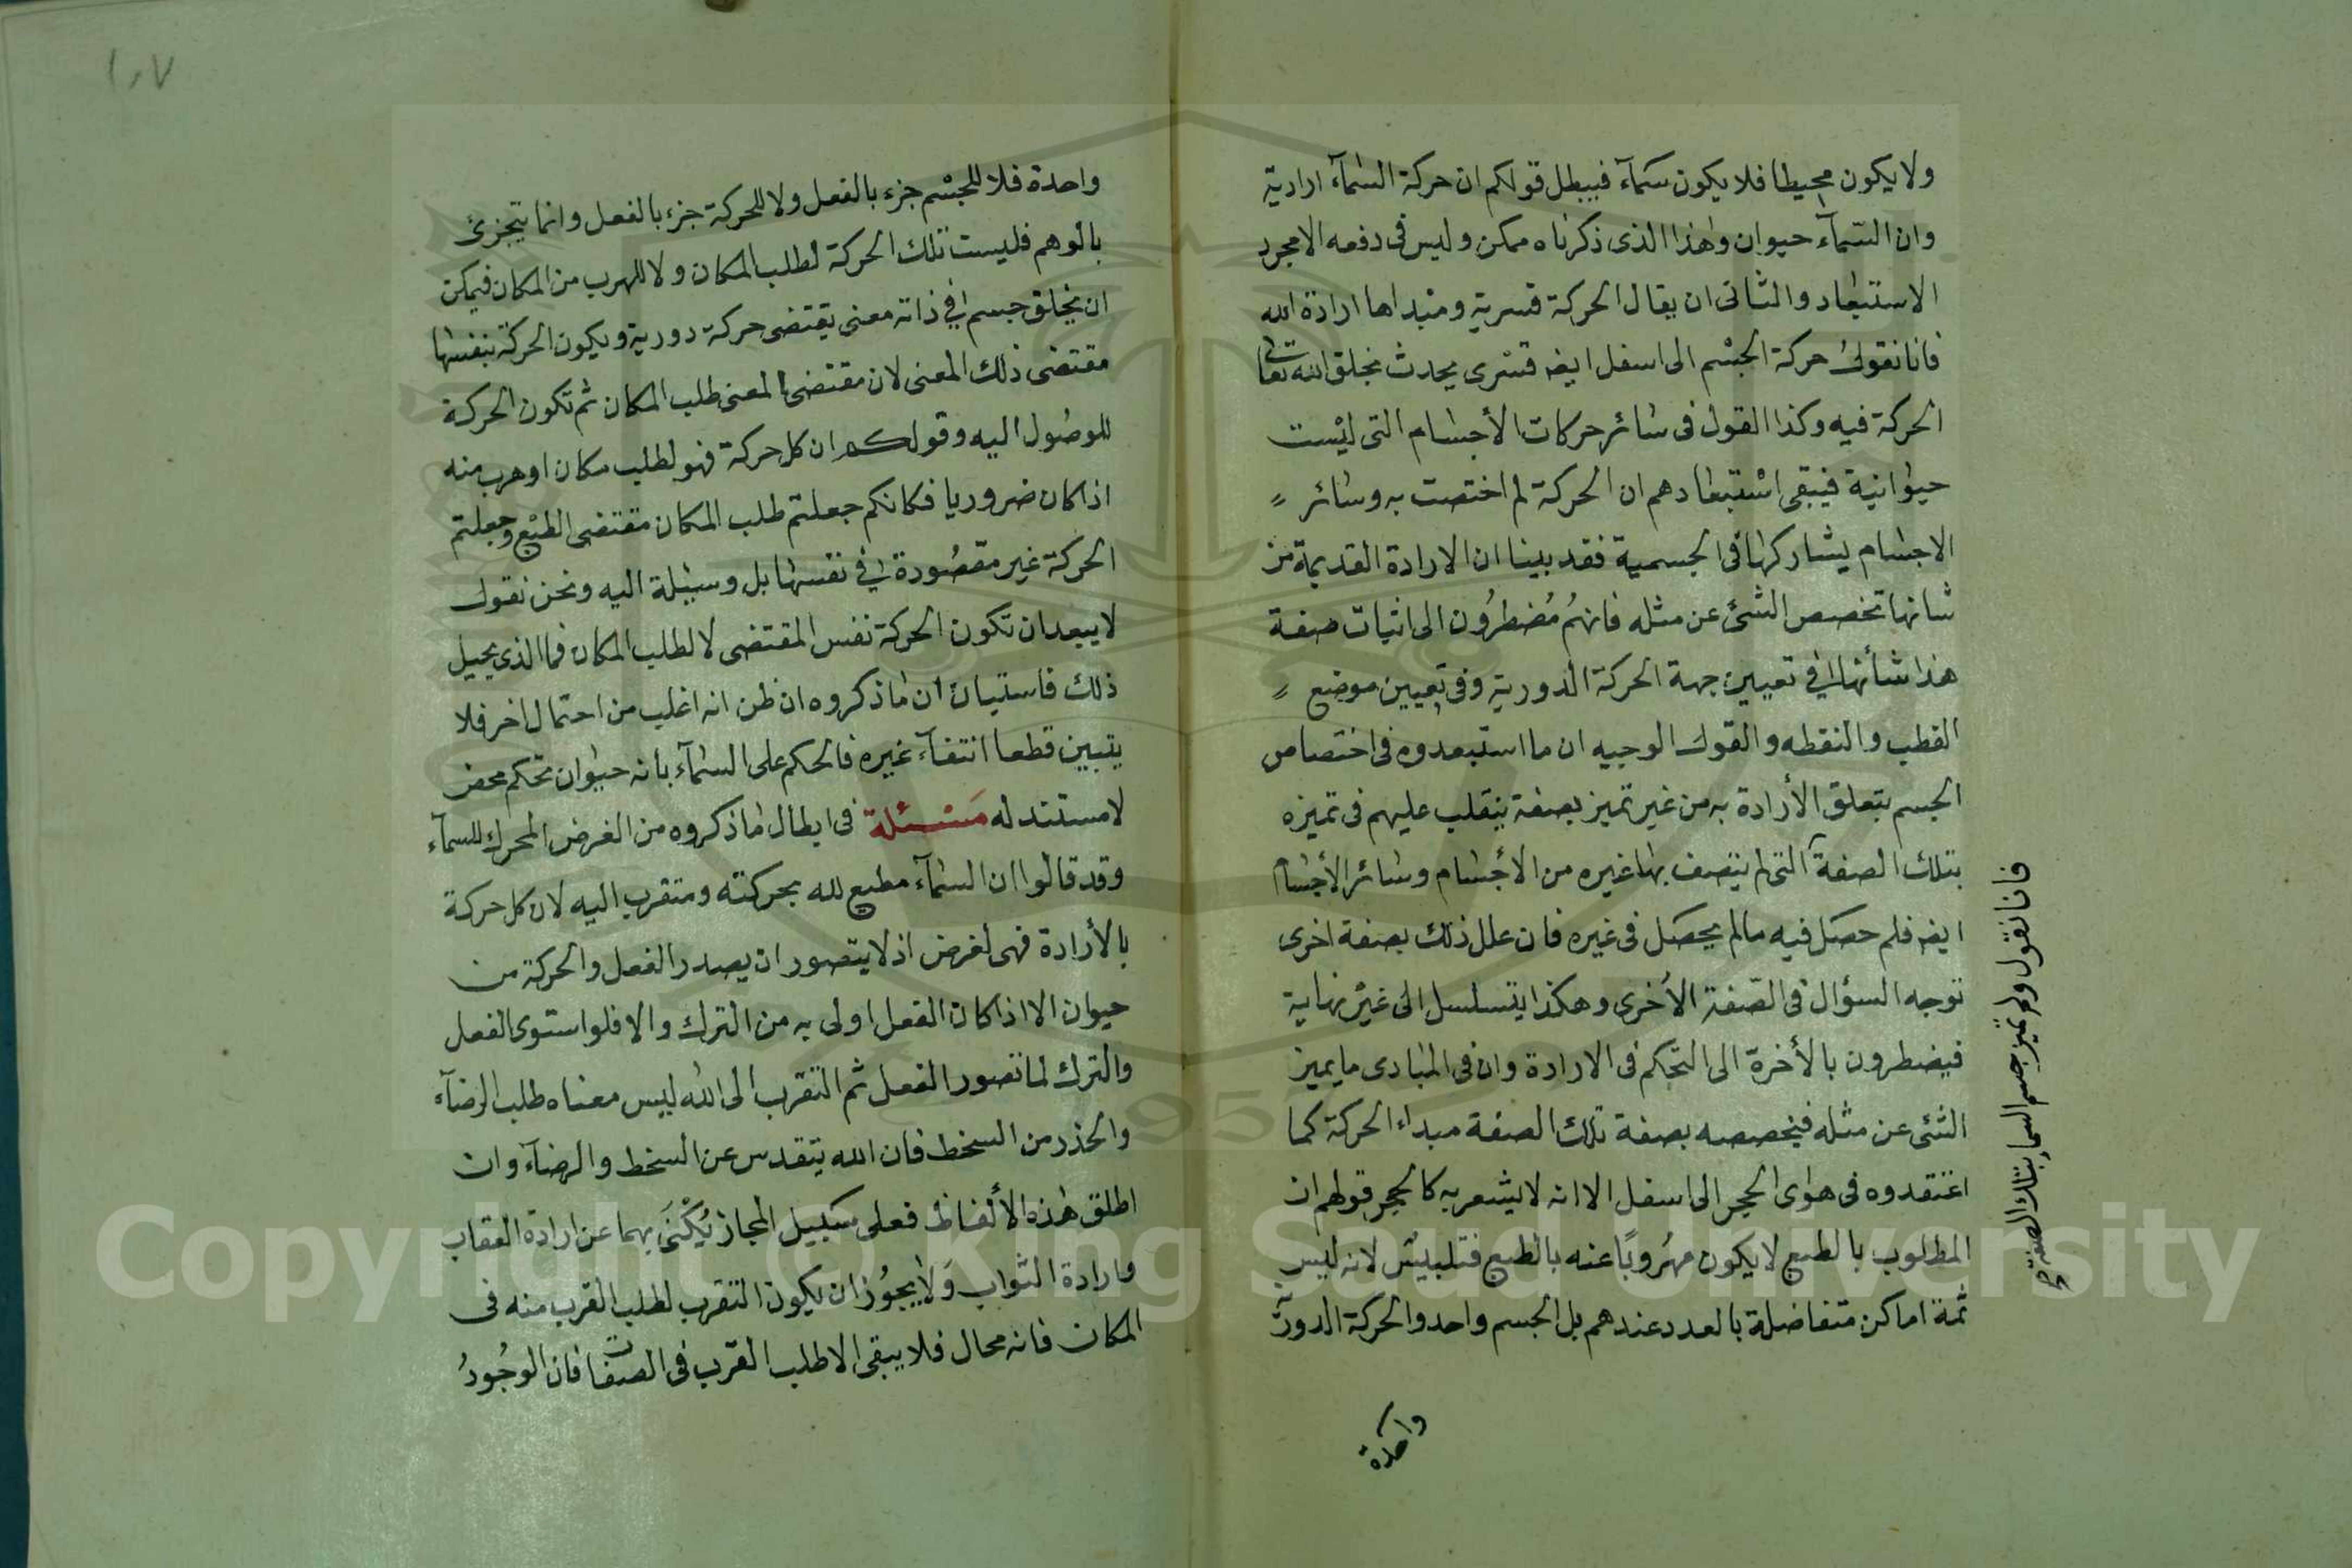 ولا يكون محيطا فلا يكون سمآء فيبطل قولكم ان حركة السمآء ارادية
وان السمآء حيوان وهذا الذى ذكرناه ممكن وليس فى دفعه الا مجرد
الاستبعاد والثانى ان يقال الحركة قسرية ومبداها ارادة الله
فانا نقول حركة الجسم الى اسفل ايضه قسرى يحدث بخلق الله تعالى
الحركة فيه وكذا القول فى سائر حركات الأجسام التى ليست
حيوانية فيبقى استبعادهم ان الحركة لم اختصت به وسائر
الاجسام يشاركها فى الجسمية فقد بينا ان الارادة القديمة من
شانها تخصص الشئ عن مثله فانهُم مُضطرُون الى اثبات صفة
هذا شأنها فى تعيين جهة الحركة الدورية وفى تعيين موضع
القطب والنقطه والقول الوجيه ان ما استبعدوه فى اختصاص
الجسم بتعلق الأرادة به من غير تميز بصفة ينقلب عليهم فى تميزه
بتلك الصفة التى لم يتصف بها غيره من الأجسام وسائر الأجسام
ايضه فلم حصل فيه مالم يحصل فى غيره فان علل ذلك بصفة اخرى
توجه السؤال فى الصفة الأخرى وهكذا يتسلسل الى غير نهاية
فيضطرون بالأخرة الى التحكم فى الارادة وان فى المبادى ما يميز
الشئ عن مثله فيخصصه بصفة تلك الصفة مبداء الحركة كما
اعتقدوه فى هوى الحجر الى اسفل الا انه لا يشعر به كالحجر قولهم ان
المطلوب بالطبع لا يكون مهُروبًا عنه بالطبع فتلبيس لانه ليس
ثمة اماكن متفاضلة بالعدد عندهم بل الجسم واحد والحركة الدورية
واحدة
فانا نقول ولم تميز جسم السماء بتلك الصفة
١٠٧
واحدة فلا للجسم جزء بالفعل ولا للحركة جزء بالفعل وانما يتجزئ
بالوهم فليست تلك الحركة لطلب المكان ولا للهرب من المكان فيمكن
ان يخلق جسم فى ذاته معنى يقتضى حركة دورية ويكون الحركة بنفسها
مقتضى ذلك المعنى لان مقتضى المعنى طلب المكان ثم تكون الحركة
للوصُول اليه وقولكم ان كل حركة فهو لطلب مكان او هرب منه
اذا كان ضروريا فكانكم جعلتم طلب المكان مقتضى الطبع وجعلتم
الحركة غير مقصُودة فى نفسها بل وسيلة اليه ونحن نقول
لا يبعد ان تكون الحركة نفس المقتضى لا لطلب المكان فما الذى يحيل
ذلك فاستبان ان ما ذكروه ان ظن انه اغلب من احتمال اخر فلا
يتبين قطعا انتفآء غيره فالحكم على السمآء بانه حيوان تحكم محض
لا مستند له مَسْئلة فى ابطال ما ذكروه من الغرض المحرك للسمآء
وقد قالوا ان السمآء مطيع لله بحركته ومتقرب اليه لان كل حركة
بالأرادة فهى لغرض اذ لا يتصور ان يصدر الفعل والحركة من
حيوان الا اذا كان الفعل اولى به من الترك والا فلو استوى الفعل
والترك لما تصور الفعل ثم التقرب الى الله ليس معناه طلب الرضآء
والحذر من السخط فان الله يتقدس عن السخط والرضآء وان
اطلق هذه الألفاظ فعلى سبيل المجاز يُكْنَى بهما عن ارادة العقاب
وارادة الثواب وَلا يجُوز ان يكون التقرب لطلب القرب منه فى
المكان فانه محال فلا يبقى الا طلب القرب فى الصفات فان الوجُودُ
Copyright © King Saud University